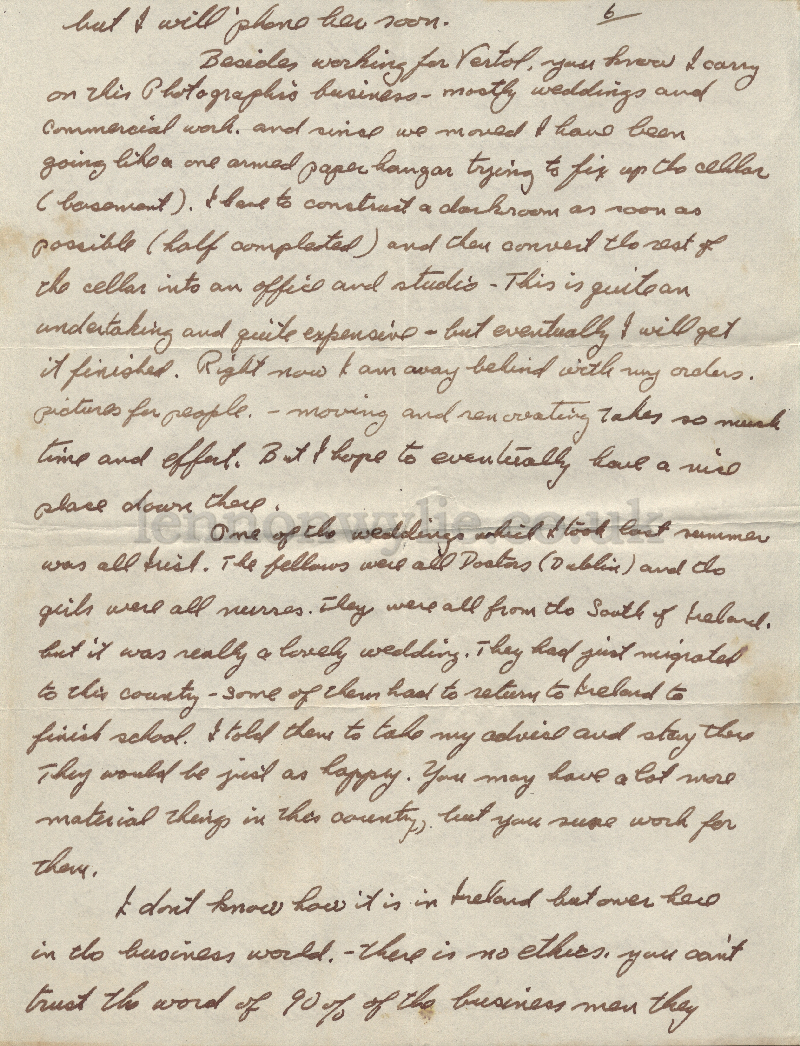 but I will phone her soon.
6
Besides working for Vertol, you know I carry
on this Photographic business - mostly weddings and
commercial work. and since we moved I have been
going like a one armed paper hanger trying to fix up the cellar
(basement). I have to construct a darkroom as soon as
possible (half completed) and then convert the rest of
the cellar into an office and studio - This is quite an
undertaking and quite expensive - but eventually I will get
it finished. Right now I am away behind with my orders.
pictures for people. - moving and renovating takes so much
time and effort. But I hope to eventually have a nice
place down there.
lennonwylie.co.uk
One of the weddings which I took last summer
was all Irish. The fellows were all Doctors (Dublin) and the
girls were all nurses. They were all from the South of Ireland.
but it was really a lovely wedding. They had just migrated
to this country - some of them had to return to Ireland to
finish school. I told them to take my advise and stay there
They would be just as happy. You may have a lot more
material things in this country, but you sure work for
them.
I don't know how it is in Ireland but over here
in the business world. - there is no ethics. you can't
trust the word of 90% of the business men they